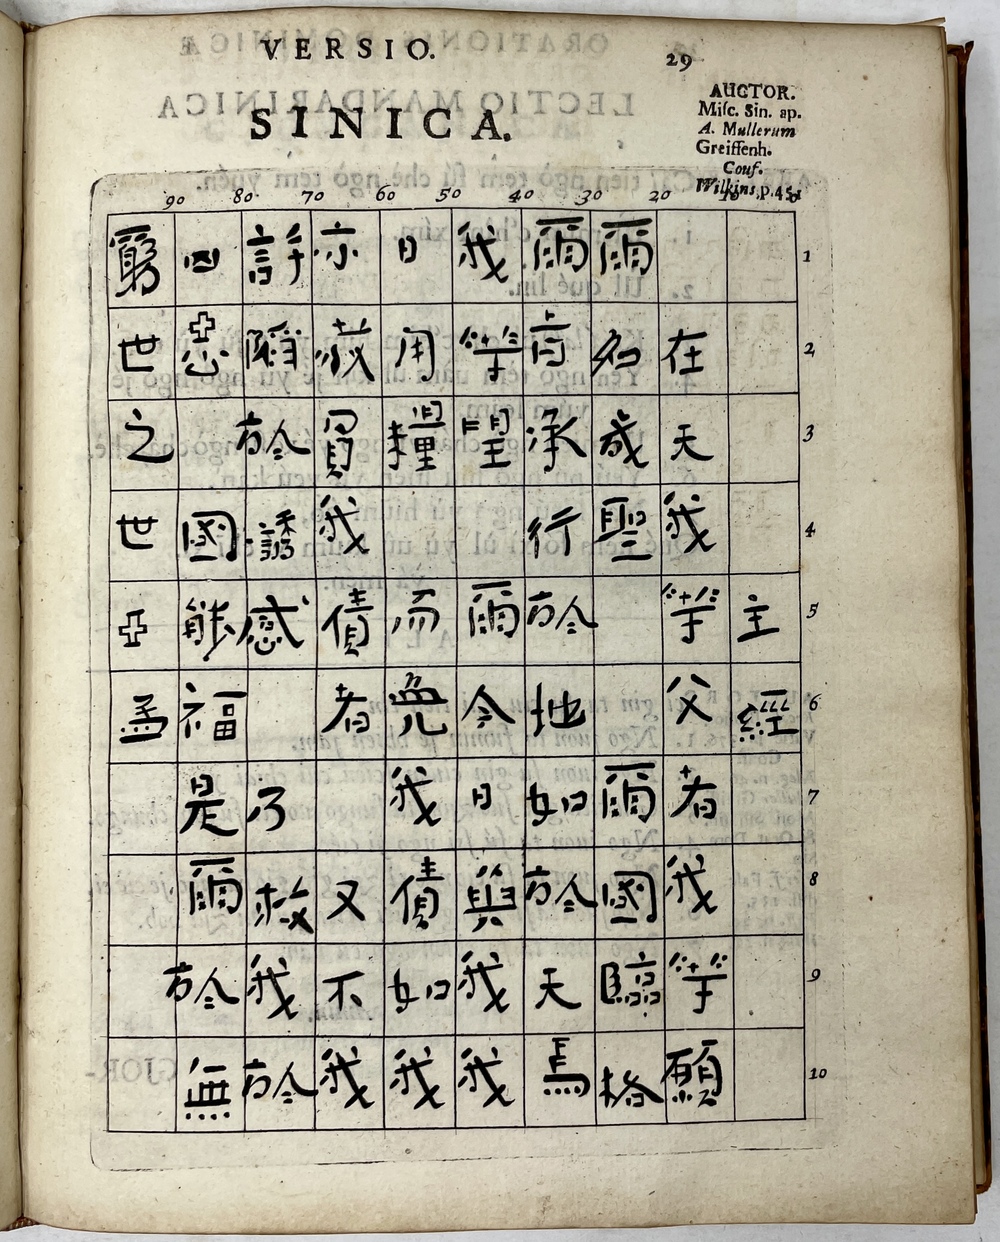 VERSIO.
29
SINICA.
AUCTOR.
Miſc. Sin. ap.
A. Mullerum
Greiffenh.
Conf.
Wilkins, p. 451
90 80 70 60 50 40 30 20 10
1
2
3
4
5
6
7
8
9
10
主經
在天我等父者我等願
爾名成聖爾國臨格
爾旨承行於地如於天焉
我等望爾今日與我我
日用糧而免我債如我
亦赦負我債者又不我
許陷於誘感乃救我於
凶惡國能福是爾於無
窮世之世亞孟